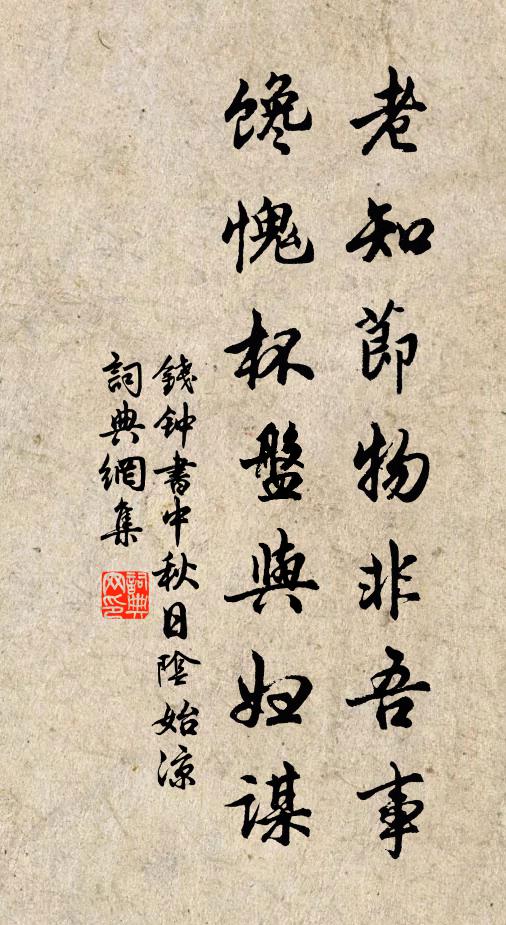 老知節物非吾事
馋愧杯盤與妇謀
錢钟書中秋日陰始凉
詞典網集
詞典
网印